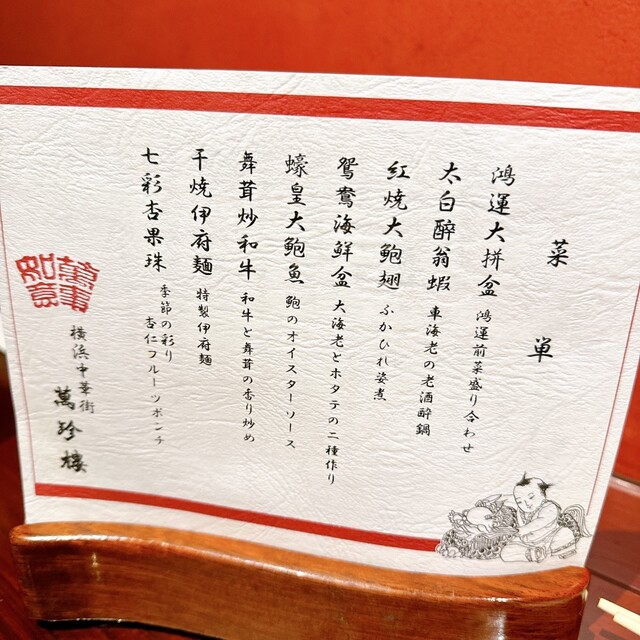 菜単
鴻運大拼盆 鴻運前菜盛り合わせ
太白醉翁蝦 車海老の老酒醉鍋
紅焼大鮑翅 ふかひれ姿煮
鴛鴦海鮮盆 大海老とホタテの二種作り
蠔皇大鮑魚 鮑のオイスターソース
舞茸炒和牛 和牛と舞茸の香り炒め
干焼伊府麺 特製伊府麺
七彩杏果珠 季節の彩り
杏仁フルーツポンチ
萬事
如意
横浜中華街
萬珍樓